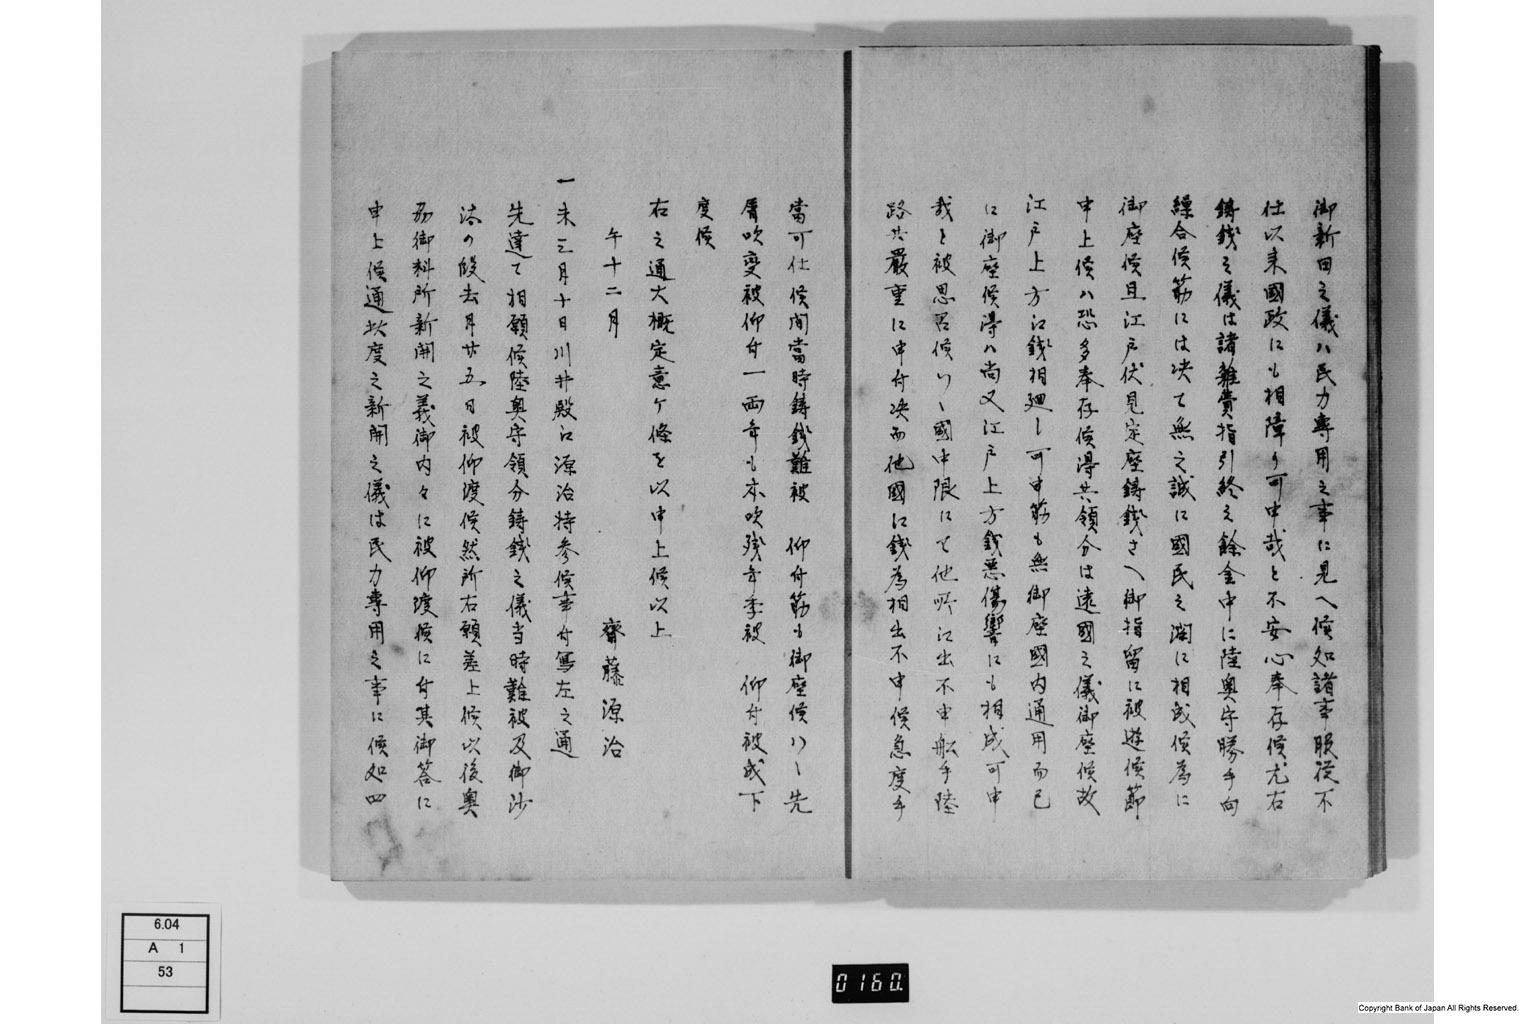 御新田之儀ハ民力専用之事に見へ候如諸事服従不
仕以来國政にも相障り可申哉と不安心奉存候尤右
鋳銭之儀は諸雑費指引終之餘金中に陸奥守勝手向
繰合候筋には决て無之誠に國民之潤に相成候為に
御座候且江戸伏見定座鋳銭さへ御指留に被遊候節
申上候ハ恐多奉存候得共領分は遠國之儀御座候故
江戸上方江銭相廻し可申筋も無御座國内通用而已
に御座候得ハ尚又江戸上方銭悪傷響にも相成可申
哉と被思召候ハヽ國中限にて他所江出不申船手陸
路共嚴重に申付决而他國江銭為相出不申候急度手
當可仕候間當時鋳銭難被 仰付筋も御座候ハヽ先
吹變被仰付一両年も吹残年季被 仰付被成下
度候
右之通大概定意ケ條を以申上候以上
午十二月
齋藤源治
一未三月十日川井殿江源治持参候事付寫左之通
先達て相願候陸奥守領分鋳銭之儀当時難被及御沙
汰の段去月廿五日被仰渡候然所右願差上候以後奥
筋御料所新開之義御内々に被仰渡候に付其御答に
申上候通此度之新開之儀は民力専用之事に候如四
6.04
A 1
53
0160.
Copyright Bank of Japan All Rights Reserved.